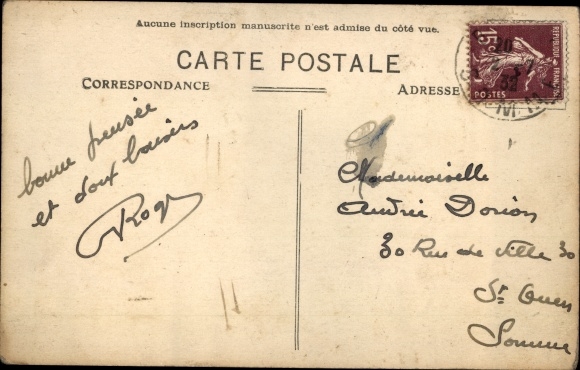 Aucune inscription manuscrite n'est admise du côté vue.
CARTE POSTALE
CORRESPONDANCE
ADRESSE
15c
REPUBLIQUE FRANÇAISE
POSTES
20
32
bonne pensée
et doux baisers
Roger
Mademoiselle
Andrée Dorion
30 Rue de Ville 30
St Ouen
Somme